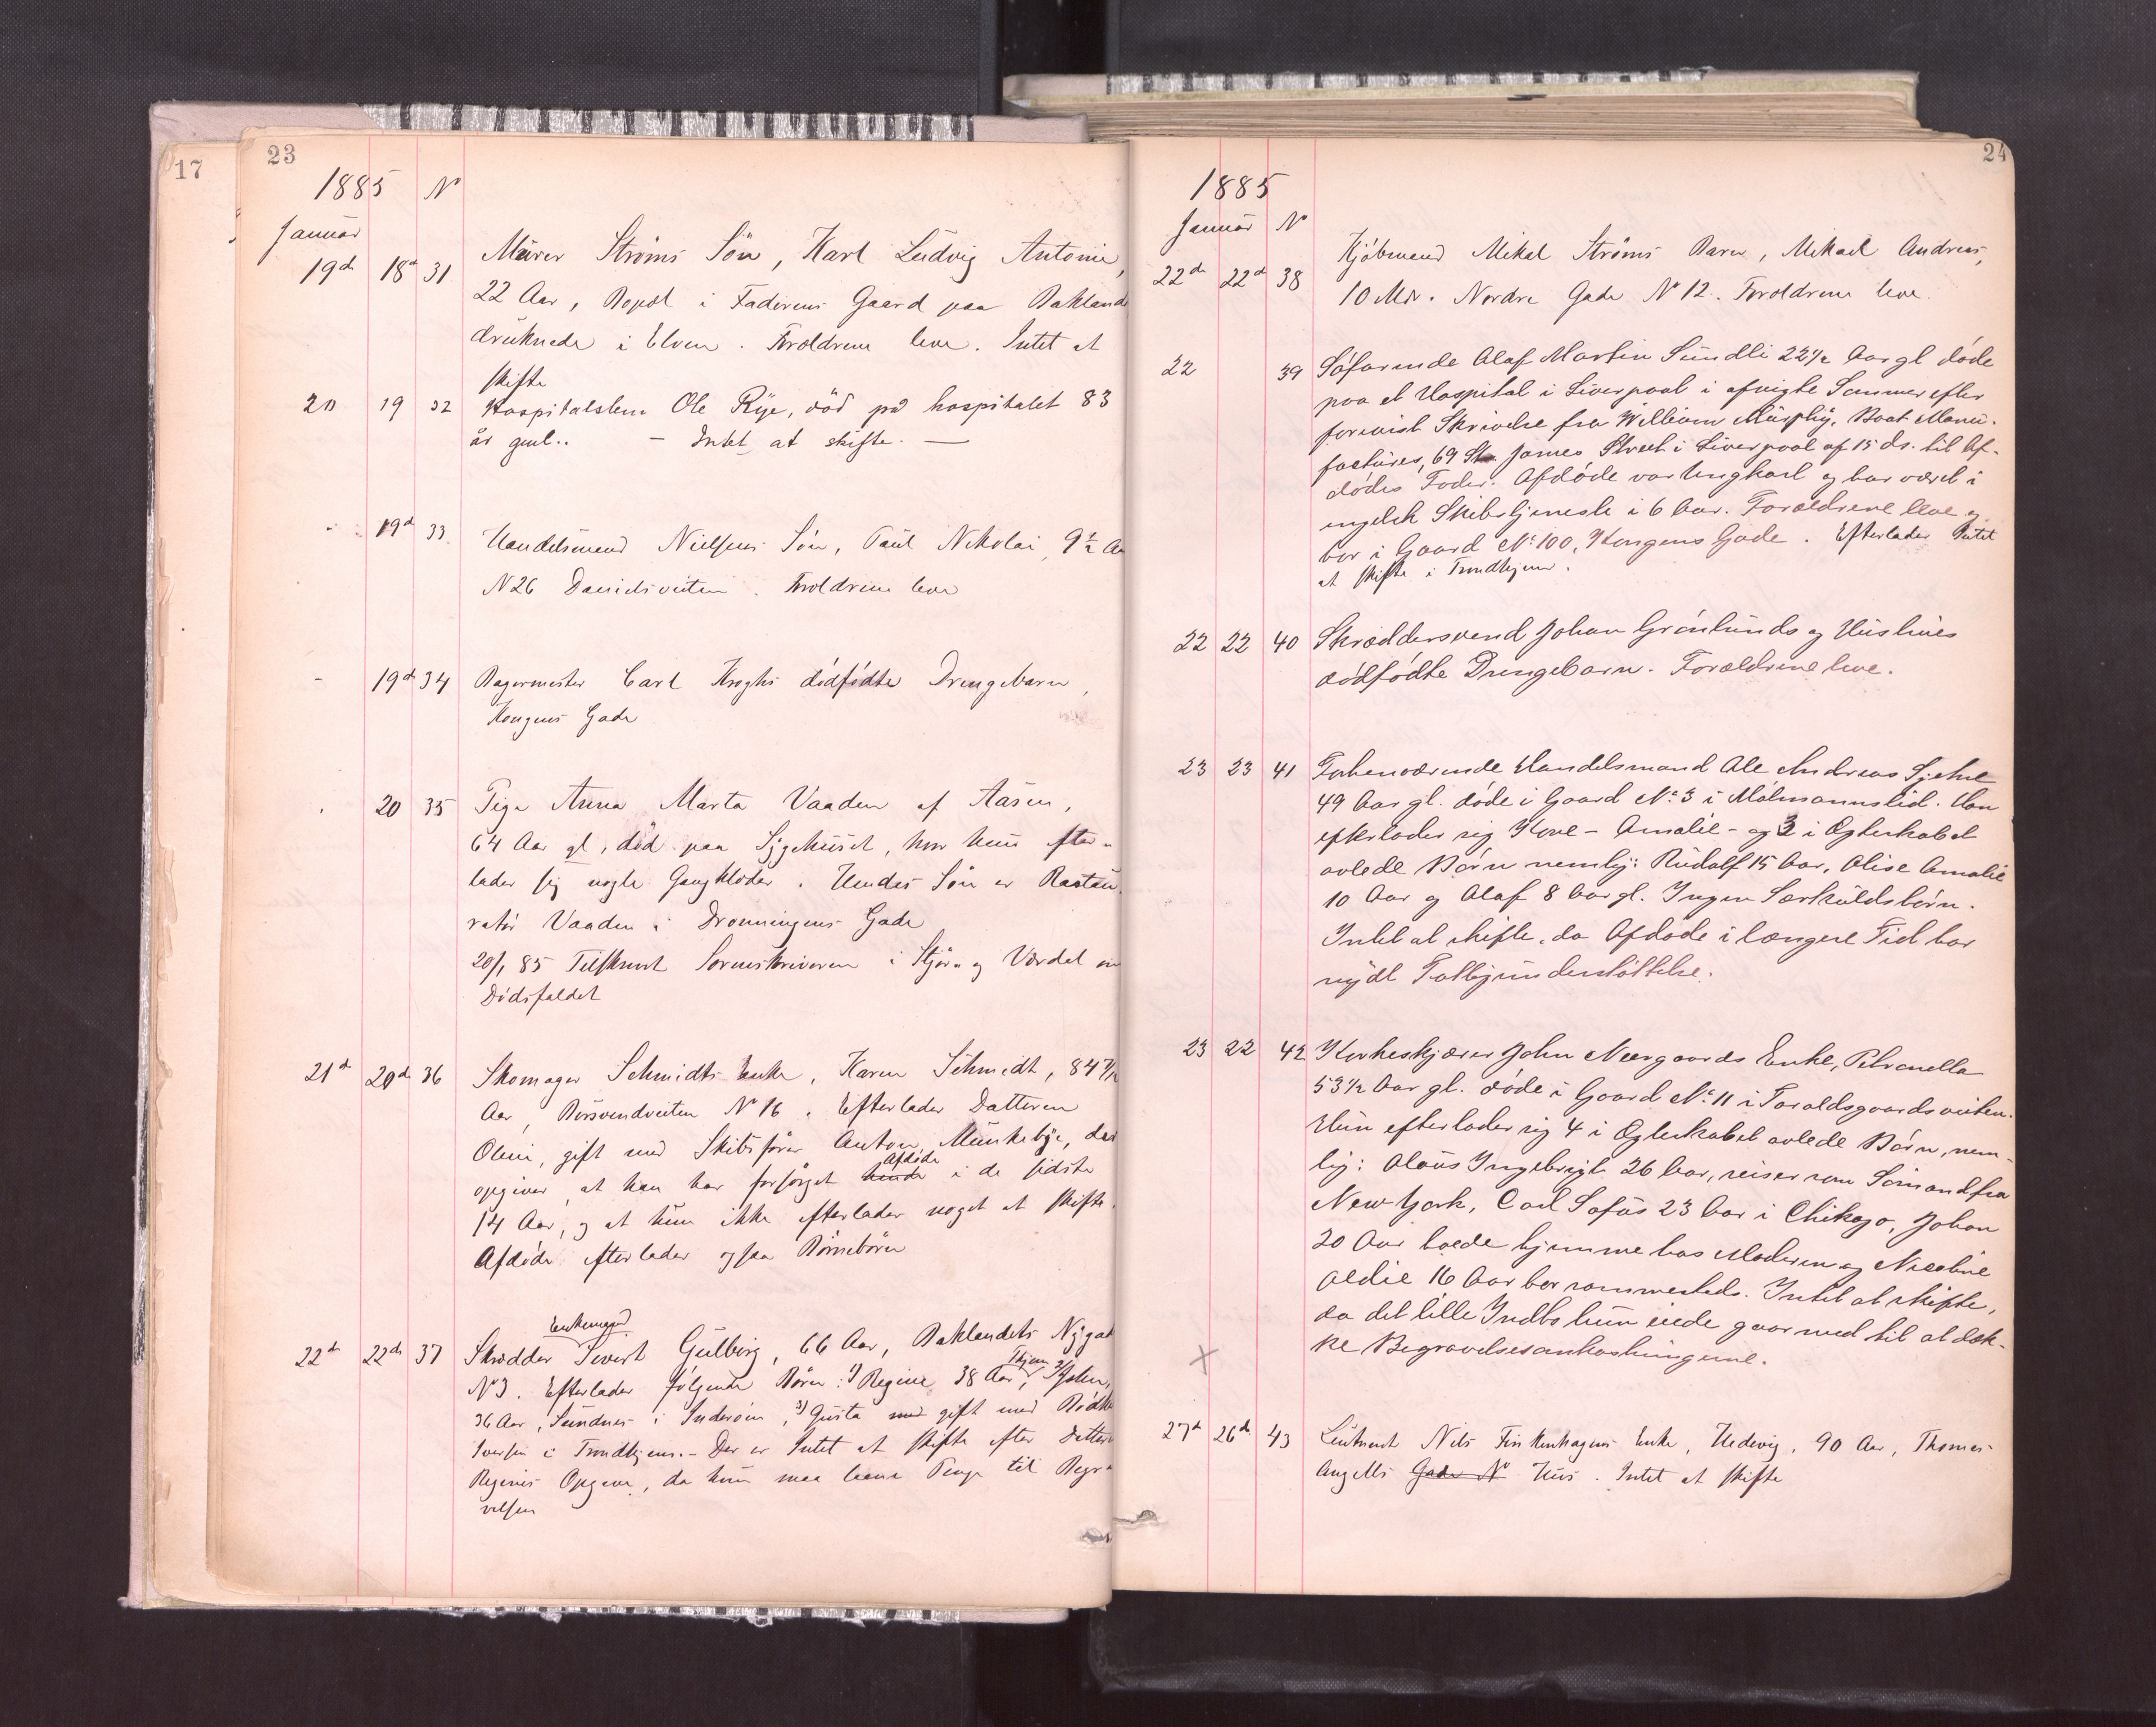 17
23
1885 No
Januar
19de 18de 31 Murer Ströms Sön, Karl Ludvig Antonie,
22 Aar, Bopæl i Faderens Gaard paa Baklandet
druknede i Elven. Forældrene leve. Intet at
skifte
20 19 32 Hospitalslem Ole Rye, död på hospitalet 83
år gml.. - Intet at skifte. -
19de 33 Handelsmand Nielsens Sön, Paul Nikolai, 9½ Aar
N 26 Davidsveiten. Forældrene leve
19de 34 Bagermester Carl Kroghs dödfödte Drengebarn,
Kongens Gade
20 35 Pige Anna Marta Vaaden af Aasen,
64 Aar gl, död paa Sygehuset, hvor hun efter-
lader sig nogle Gangklæder. Hendes Sön er Rastau-
ratör Vaaden i Dronningens Gade
20/1 85 Tilskrevet Sorenskriveren i Stjör- og Værdal om
Dödsfaldet
21de 20de 36 Skomager Schmidts Enke, Karen Schmidt, 84 7/12
Aar, Börsvendveiten No 16. Efterlader Datteren
Oline, gift med Skibsförer Anton Munkebye, der
opgiver, at han har forsörget hende Afdöde i de sidste
14 Aar, og at hun ikke efterlader noget at skifte.
Afdöde efterlader ogsaa Börnebörn
Enkemand
22de 22de 37 Skrædder Sivert Gulberg, 66 Aar, Baklandets Nygade
No 3. Efterlader fölgende Börn: 1) Regine 38 Aar, Thjem 2) John,
36 Aar, Sundnes i Inderöen, 3) Gusta med gift med Rödk
Iversen i Trondhjem. - Der er Intet at skifte efter Datteren
Regines Opgave, da hun maa laane Penge til Begra-
velsen
24
1885
Januar No
22de 22de 38 Kjöbmand Mikal Ströms Barn, Mikael Andreas,
10 Mdr. Nordre Gade No 12. Forældrene leve.
22 39 Söfarende Olaf Martin Sundli 22½ Aar gl döde
paa et Hospital i Liverpool i afvigte Sommer efter
forevist Skrivelse fra William Murphy, Boat Manu-
factures, 69 St. James Street i Liverpool af 15 ds. til Af-
dödes Fader. Afdöde var Ungkarl og har været i
engelsk Skibstjeneste i 6 Aar. Forældrene leve og
bor i Gaard No 100, Kongens Gade. Efterlader Intet
at skifte i Trondhjem.
22 22 40 Skræddersvend Johan Grönlunds og Hustrues
dödfödte Drengebarn. Forældrene leve.
23 23 41 Forhenværende Handelsmand Ole Andreas Sjetne
49 Aar gl. döde i Gaard No 3 i Målmannslid. Han
efterlader sig Kone - Amalie - og 3 i Ægteskabet
avlede Börn nemlig: Rudolf 15 Aar, Olise Amalie
10 Aar og Olaf 8 Aar gl. Ingen Særkuldsbörn.
Intet at skifte, da Afdöde i længere Tid har
nydt Fattigunderstöttelse.
23 22 42 Korkeskjærer John Neergaards Enke, Petronella
53½ Aar gl. döde i Gaard No 11 i Taraldsgaardsveiten.
Hun efterlader sig 4 i Ægteskabet avlede Börn, nem-
lig: Olaus Ingebrigt 26 Aar, reiser som Sömand fra
New York, Carl Sofus 23 Aar i Chikago, Johan
20 Aar boede hjemme hos Moderen og Nicoline
Oldie 16 Aar bor sammesteds. Intet at skifte,
da det lille Indbo hun eiede gaar med til at dæk-
ke Begravelsesomkostningerne.
X
27de 26de 43 Leutnant Nils Finkenhagens Enke, Hedevig, 90 Aar, Thomas
Angells Gade No Hus. Intet at skifte